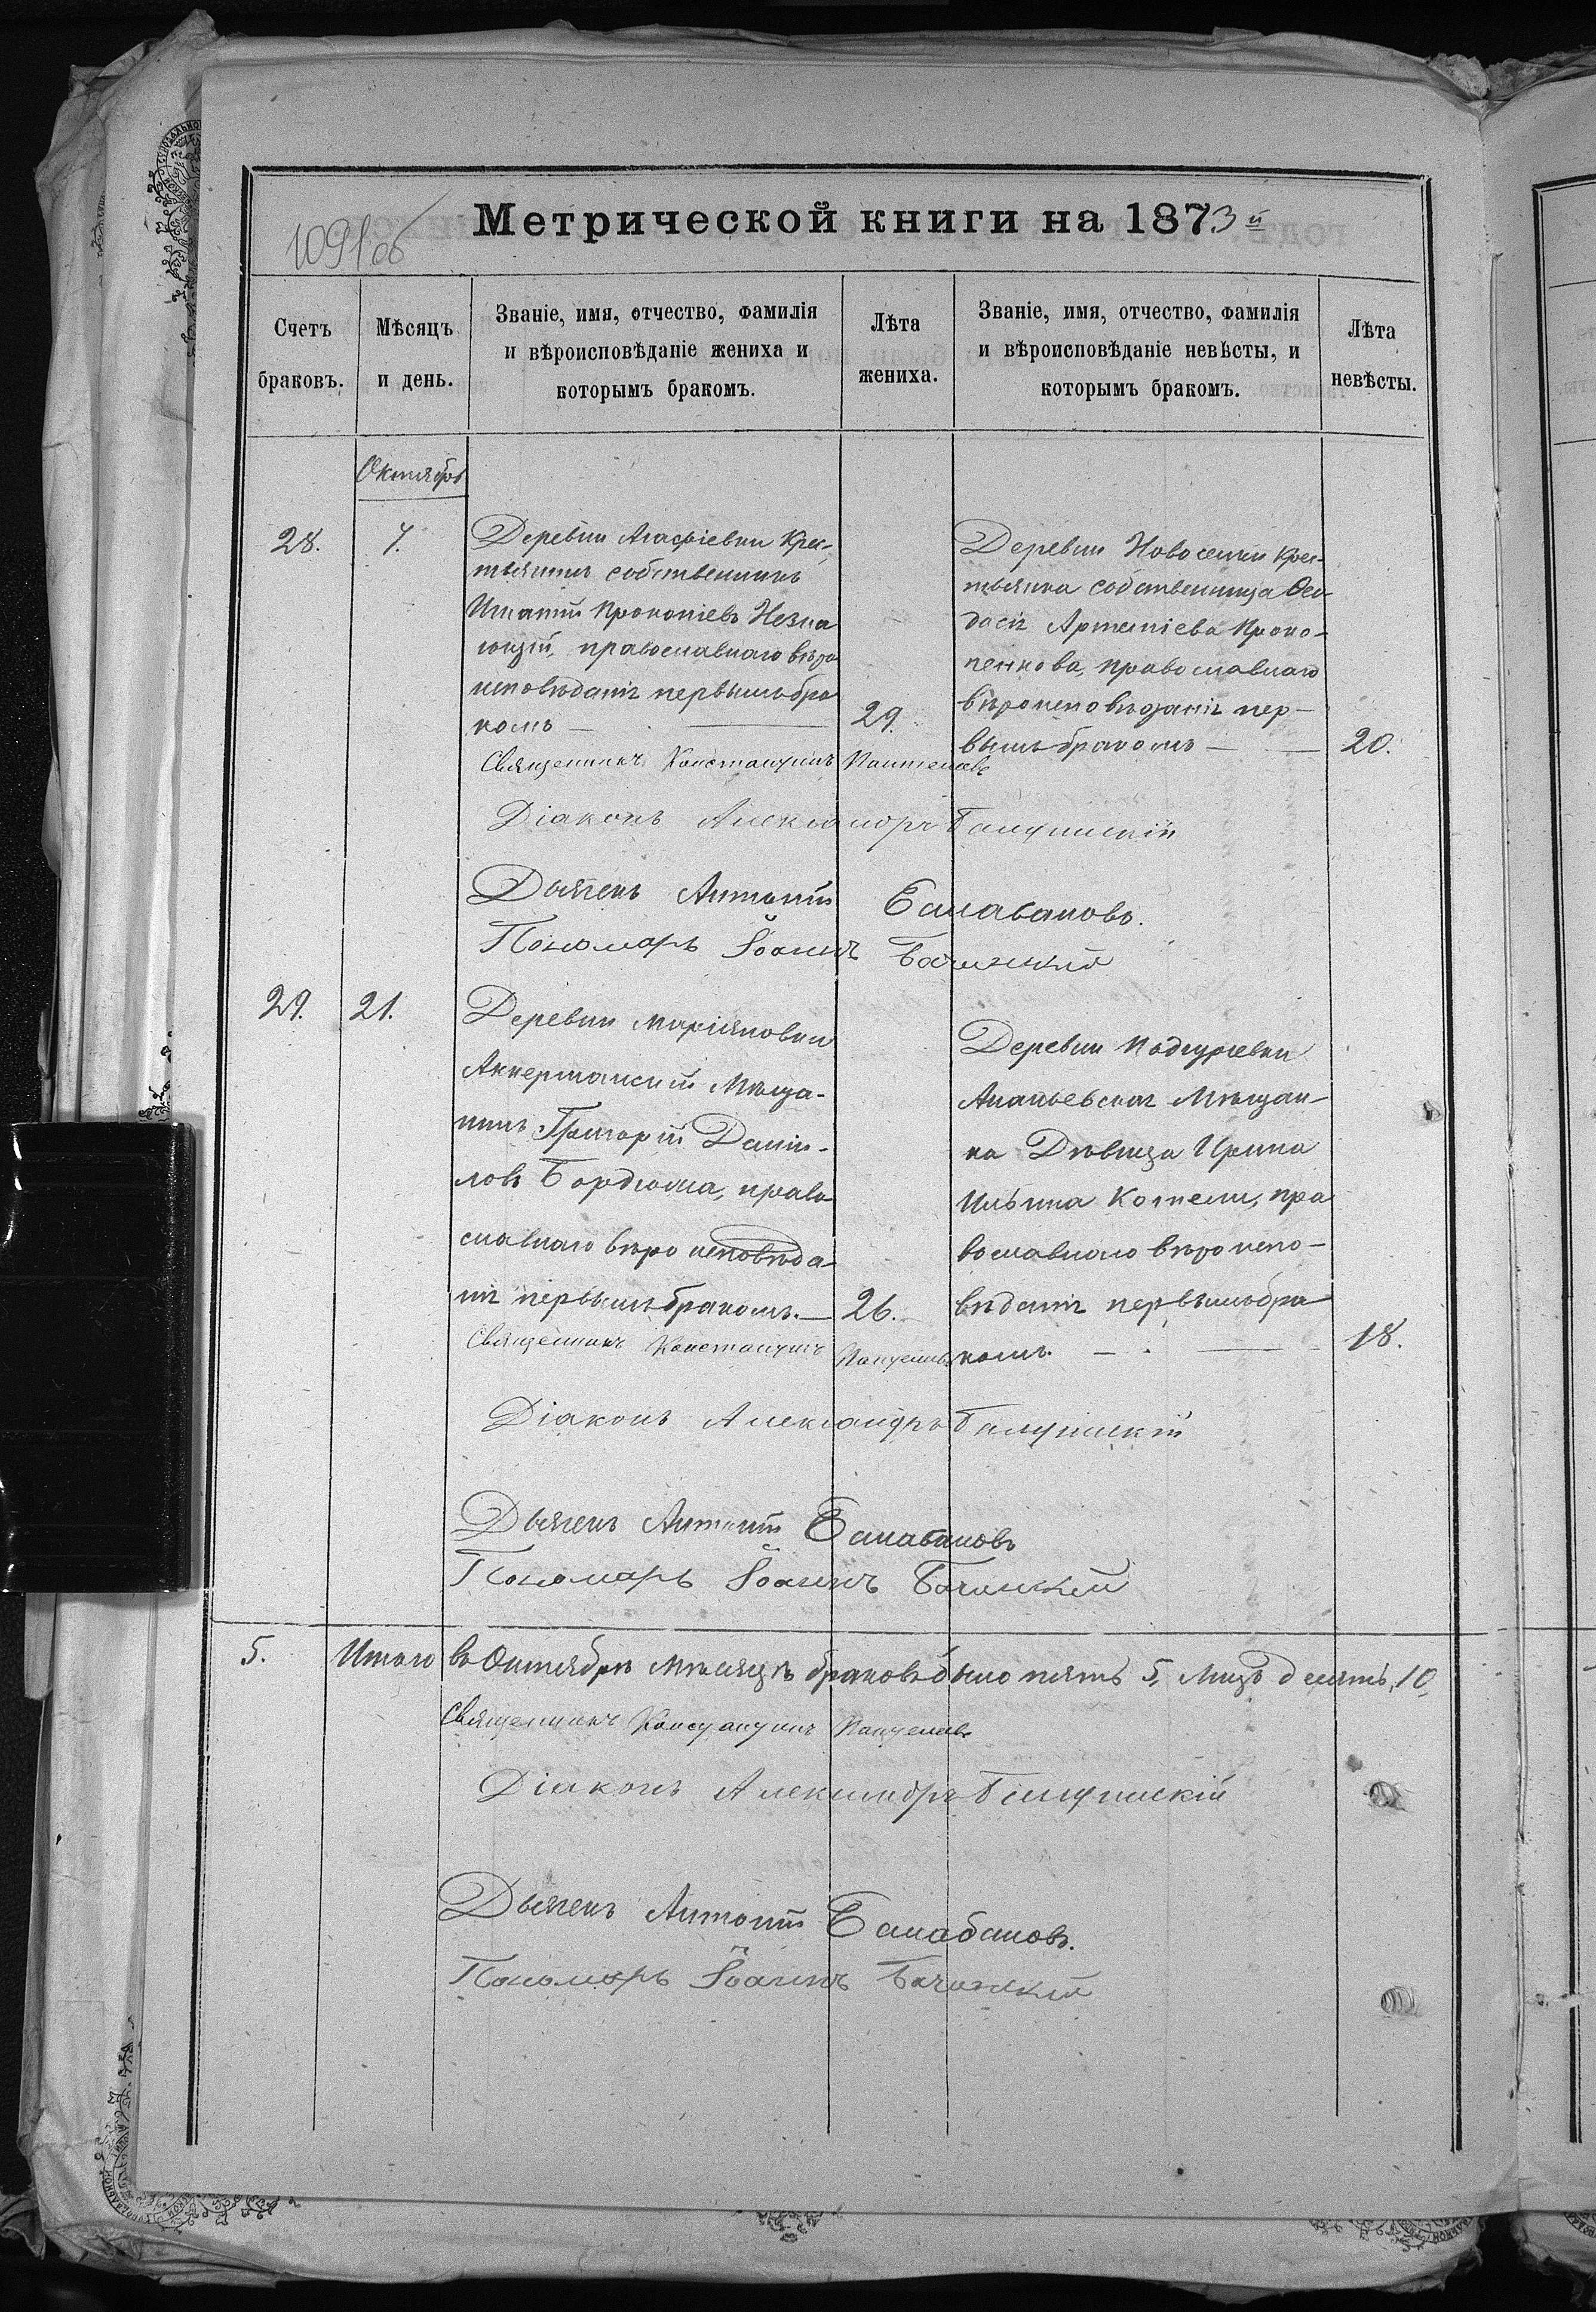 1091об
Метрической книги на 1873й
Счетъ браковъ.
Мѣсяцъ и день.
Званіе, имя, отчество, фамилія и вѣроисповѣданіе жениха и которымъ бракомъ.
Лѣта жениха.
Званіе, имя, отчество, фамилія и вѣроисповѣданіе невѣсты, и которымъ бракомъ.
Лѣта невѣсты.
Октябрь
28.
7.
Деревни Агафіевки Крес-
тьянинъ собственникъ
Игнатій Прокопіевъ Незна
ющій, православнаго вѣро
исповѣданія первымъ бра
комъ —
29.
Деревни Новоселки Крес-
тьянка собственница Өео
досія Артеміева Проко-
пенкова, православнаго
вѣроисповѣданія пер-
вымъ бракомъ —
20.
Священникъ Константинъ
Діаконъ Александръ
Дьячекъ Антоній Балабановъ.
Пономарь Іоаннъ Бачинскій
29.
21.
Деревни Маріяновки
Аккерманскій Мѣща-
нинъ Григорій Даніи-
ловъ Бордюжа, право
славнаго вѣроисповѣда-
нія первымъ бракомъ. —
26.
Деревни Подгурьевки
Ананьевская Мѣщан-
ка Дѣвица Ирина
Ильина Коппели, пра
вославнаго вѣроиспо-
вѣданія первымъ бра
комъ. —
18.
Священникъ Константинъ
Діаконъ Александръ
Дьячекъ Антоній Балабановъ
Пономарь Іоаннъ Бачинскій
5. Итого въ Октябрѣ мѣсяцѣ браковъ было пять 5, лицъ десять, 10,
Священникъ Константинъ
Діаконъ Александръ
Дьячекъ Антоній Балабановъ.
Пономарь Іоаннъ Бачинскій